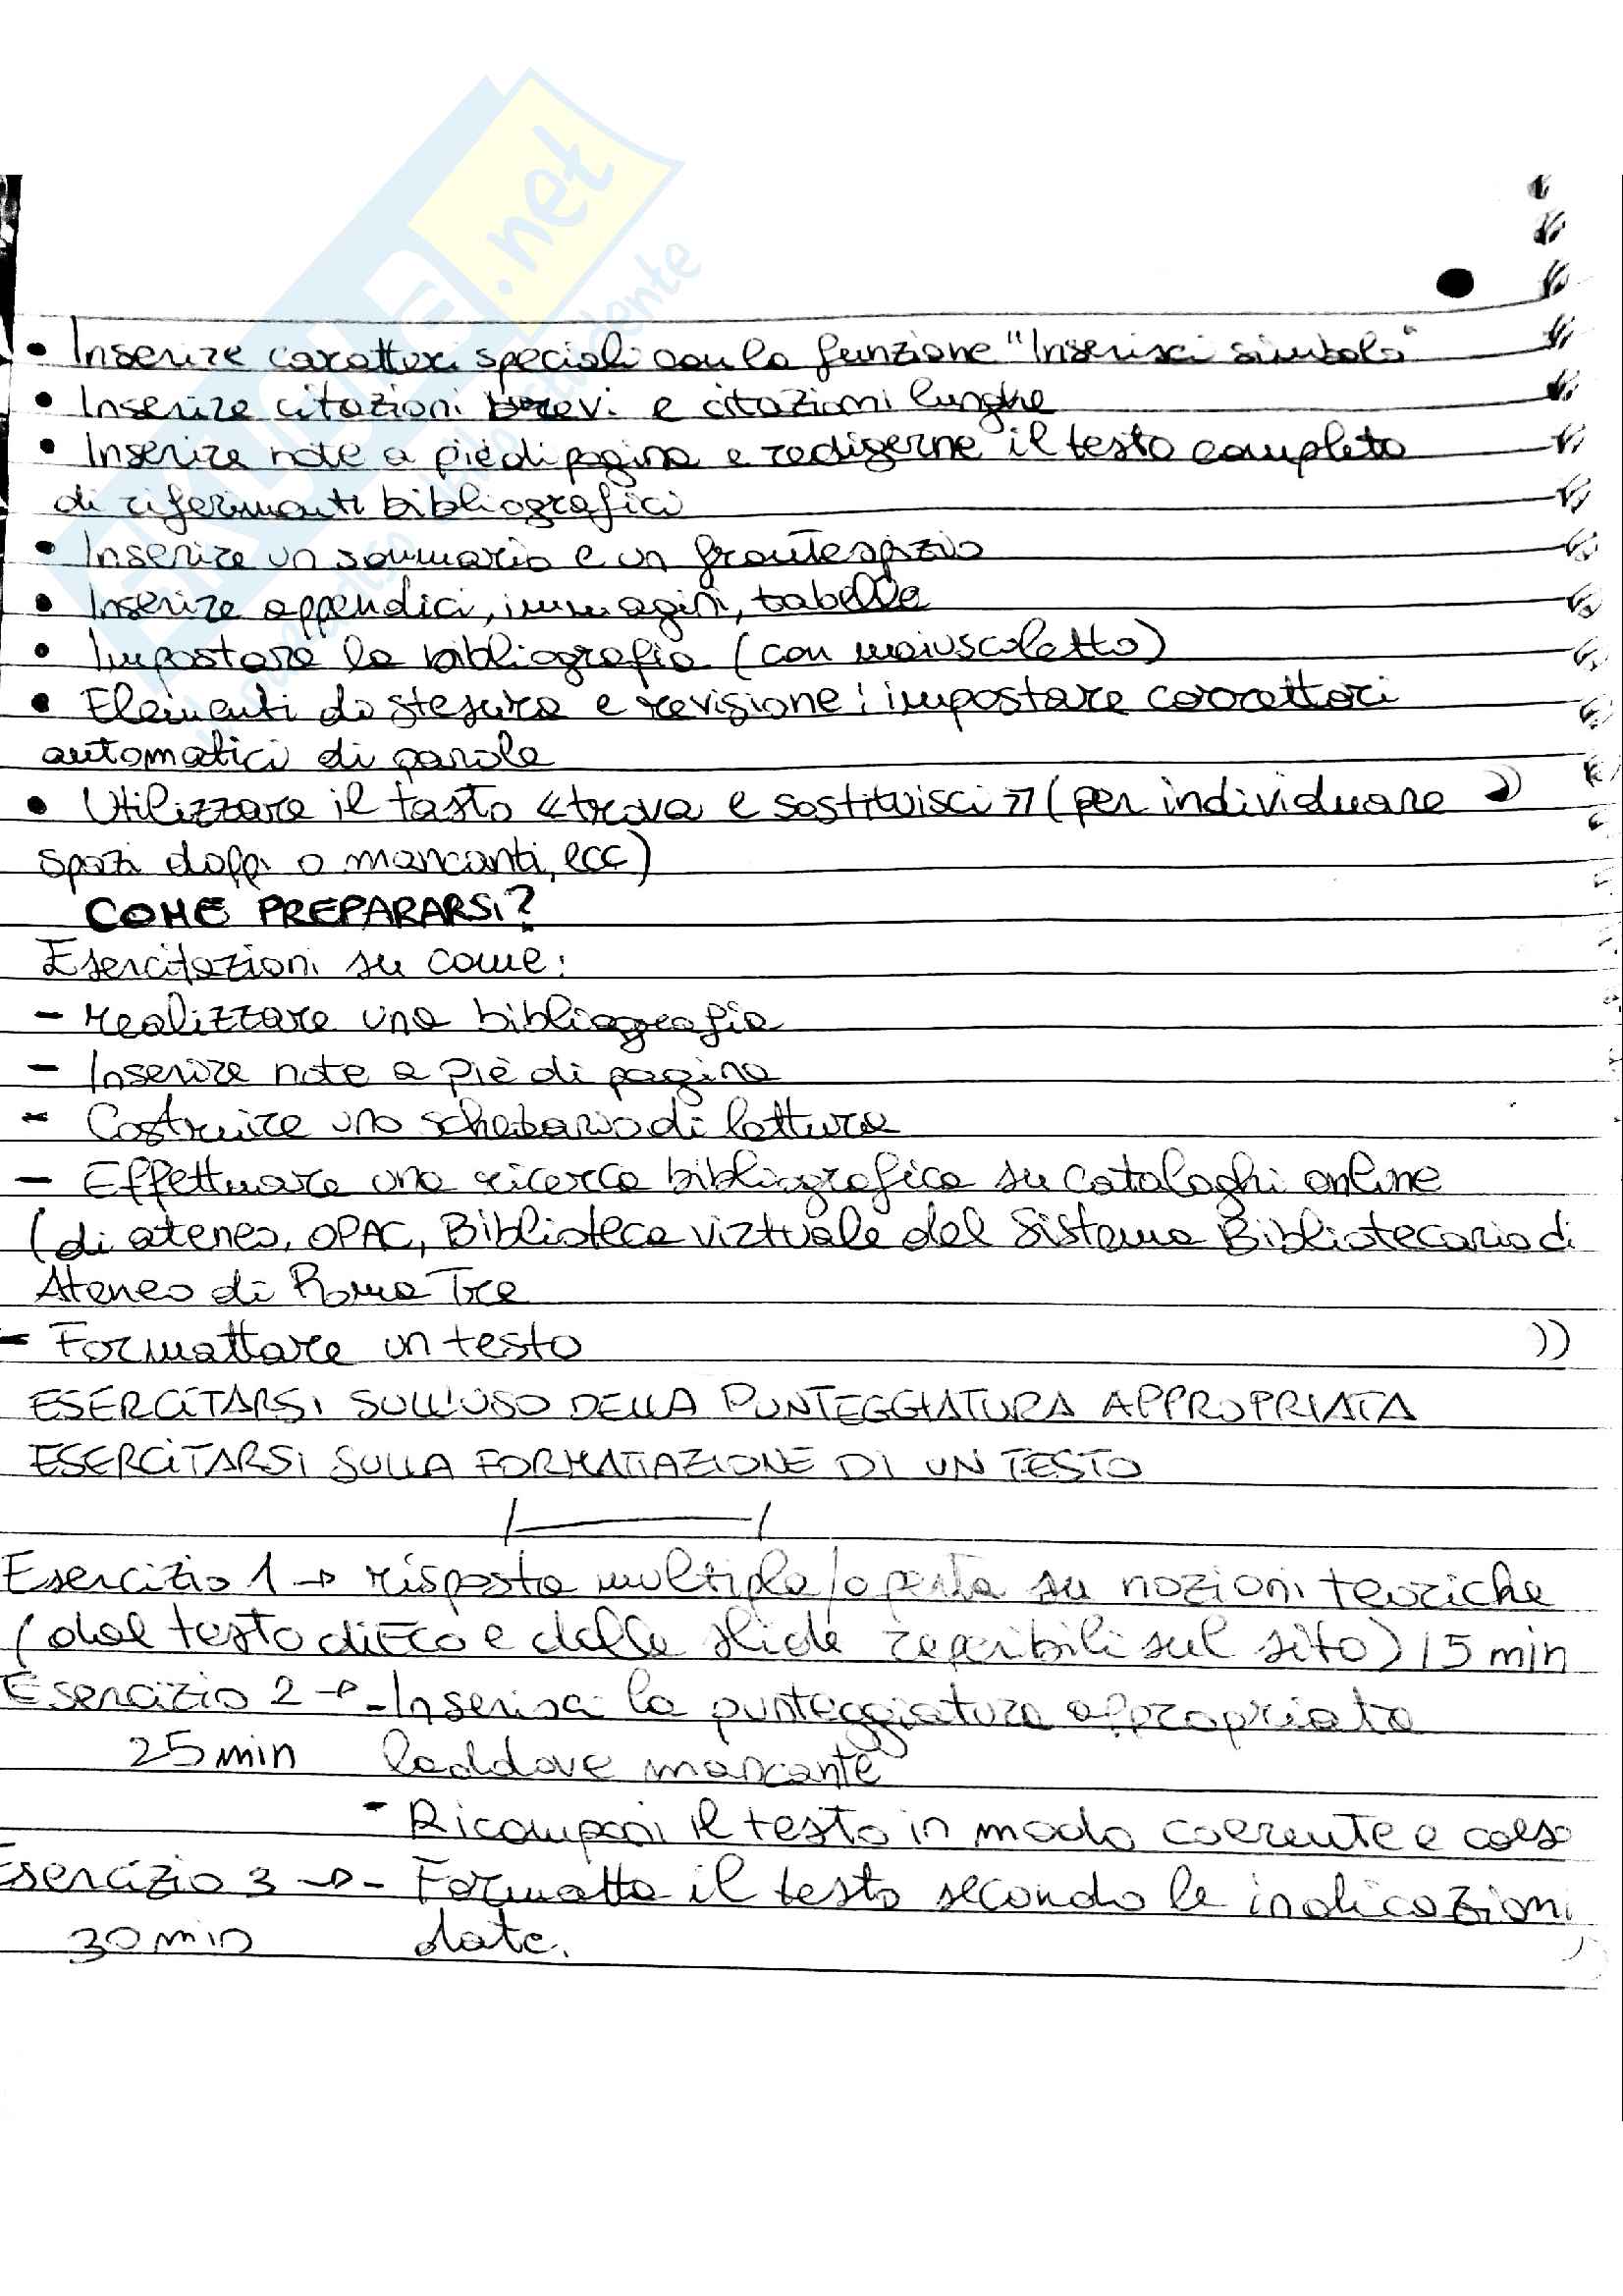 • Inserire caratteri speciali con la funzione "Inserisci simbolo"
• Inserire citazioni brevi e citazioni lunghe
• Inserire note a piè di pagina e redigerne il testo completo
di riferimenti bibliografici
• Inserire un sommario e un frontespizio
• Inserire appendici, immagini, tabelle
• Impostare la bibliografia (con maiuscoletto)
• Elementi di stesura e revisione: impostare correttori
automatici di parole
• Utilizzare il tasto «trova e sostituisci» (per individuare
spazi doppi o mancanti, ecc)
COME PREPARARSI?
Esercitazioni su come:
- realizzare una bibliografia
- Inserire note a piè di pagina
- Costruire uno schedario di lettura
- Effettuare una ricerca bibliografica su cataloghi online
(di ateneo, OPAC, Biblioteca virtuale del Sistema Bibliotecario di
Ateneo di Roma Tre
- Formattare un testo
ESERCITARSI SULL'USO DELLA PUNTEGGIATURA APPROPRIATA
ESERCITARSI SULLA FORMATTAZIONE DI UN TESTO
Esercizio 1 → risposta multipla/aperta su nozioni teoriche
(dal testo di Eco e dalle slide reperibili sul sito) 15 min
Esercizio 2 → - Inserisci la punteggiatura appropriata
25 min laddove mancante
- Ricomponi il testo in modo coerente e coeso
Esercizio 3 → - Formatta il testo secondo le indicazioni
30 min date.
.net